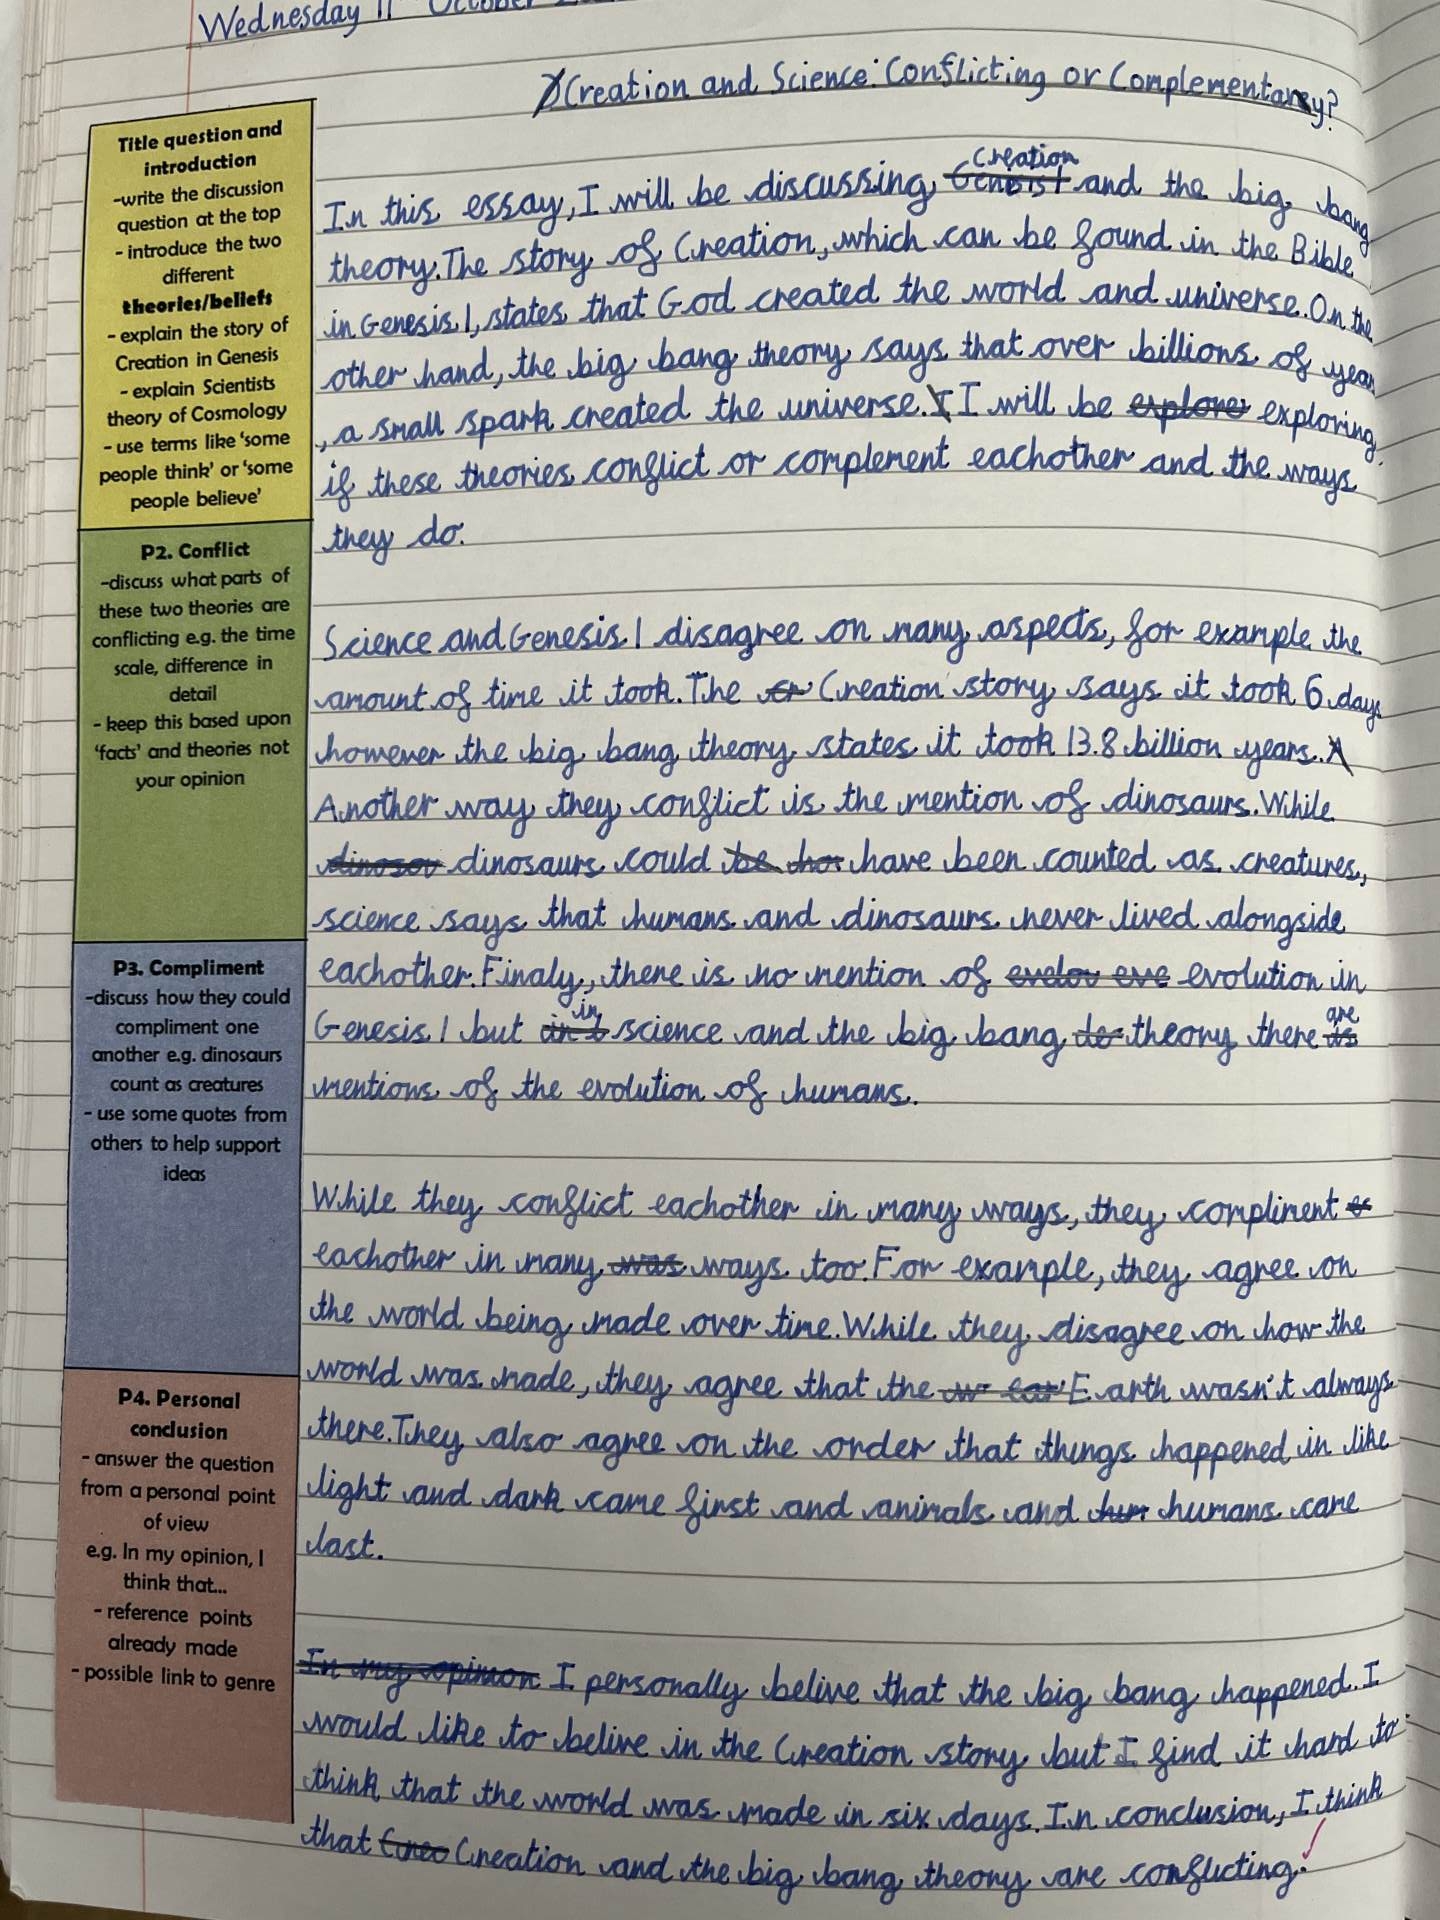 Wednesday 11th October
Creation and Science: Conflicting or Complementary?
Title question and
introduction
-write the discussion
question at the top
- introduce the two
different
theories/beliefs
- explain the story of
Creation in Genesis
- explain Scientists
theory of Cosmology
- use terms like 'some
people think' or 'some
people believe'
In this essay, I will be discussing Creation and the big bang
theory. The story of Creation, which can be found in the Bible
in Genesis 1, states that God created the world and universe. On the
other hand, the big bang theory says that over billions of year
, a small spark created the universe. I will be exploring
if these theories conflict or complement eachother and the ways
they do.
P2. Conflict
-discuss what parts of
these two theories are
conflicting e.g. the time
scale, difference in
detail
- keep this based upon
'facts' and theories not
your opinion
Science and Genesis 1 disagree on many aspects, for example the
amount of time it took. The Creation story says it took 6 days
however the big bang theory states it took 13.8 billion years.
Another way they conflict is the mention of dinosaurs. While
dinosaurs could have been counted as creatures,
science says that humans and dinosaurs never lived alongside
eachother. Finaly, there is no mention of evolution in
Genesis 1 but in science and the big bang theory there are
mentions of the evolution of humans.
P3. Compliment
-discuss how they could
compliment one
another e.g. dinosaurs
count as creatures
- use some quotes from
others to help support
ideas
While they conflict eachother in many ways, they compliment
eachother in many ways too. For example, they agree on
the world being made over time. While they disagree on how the
world was made, they agree that the Earth wasn't always
there. They also agree on the order that things happened in like
light and dark came first and animals and humans came
last.
P4. Personal
conclusion
- answer the question
from a personal point
of view
e.g. In my opinion, I
think that...
- reference points
already made
- possible link to genre
I personally belive that the big bang happened. I
would like to belive in the Creation story but I find it hard to
think that the world was made in six days. In conclusion, I think
that Creation and the big bang theory are conflicting.